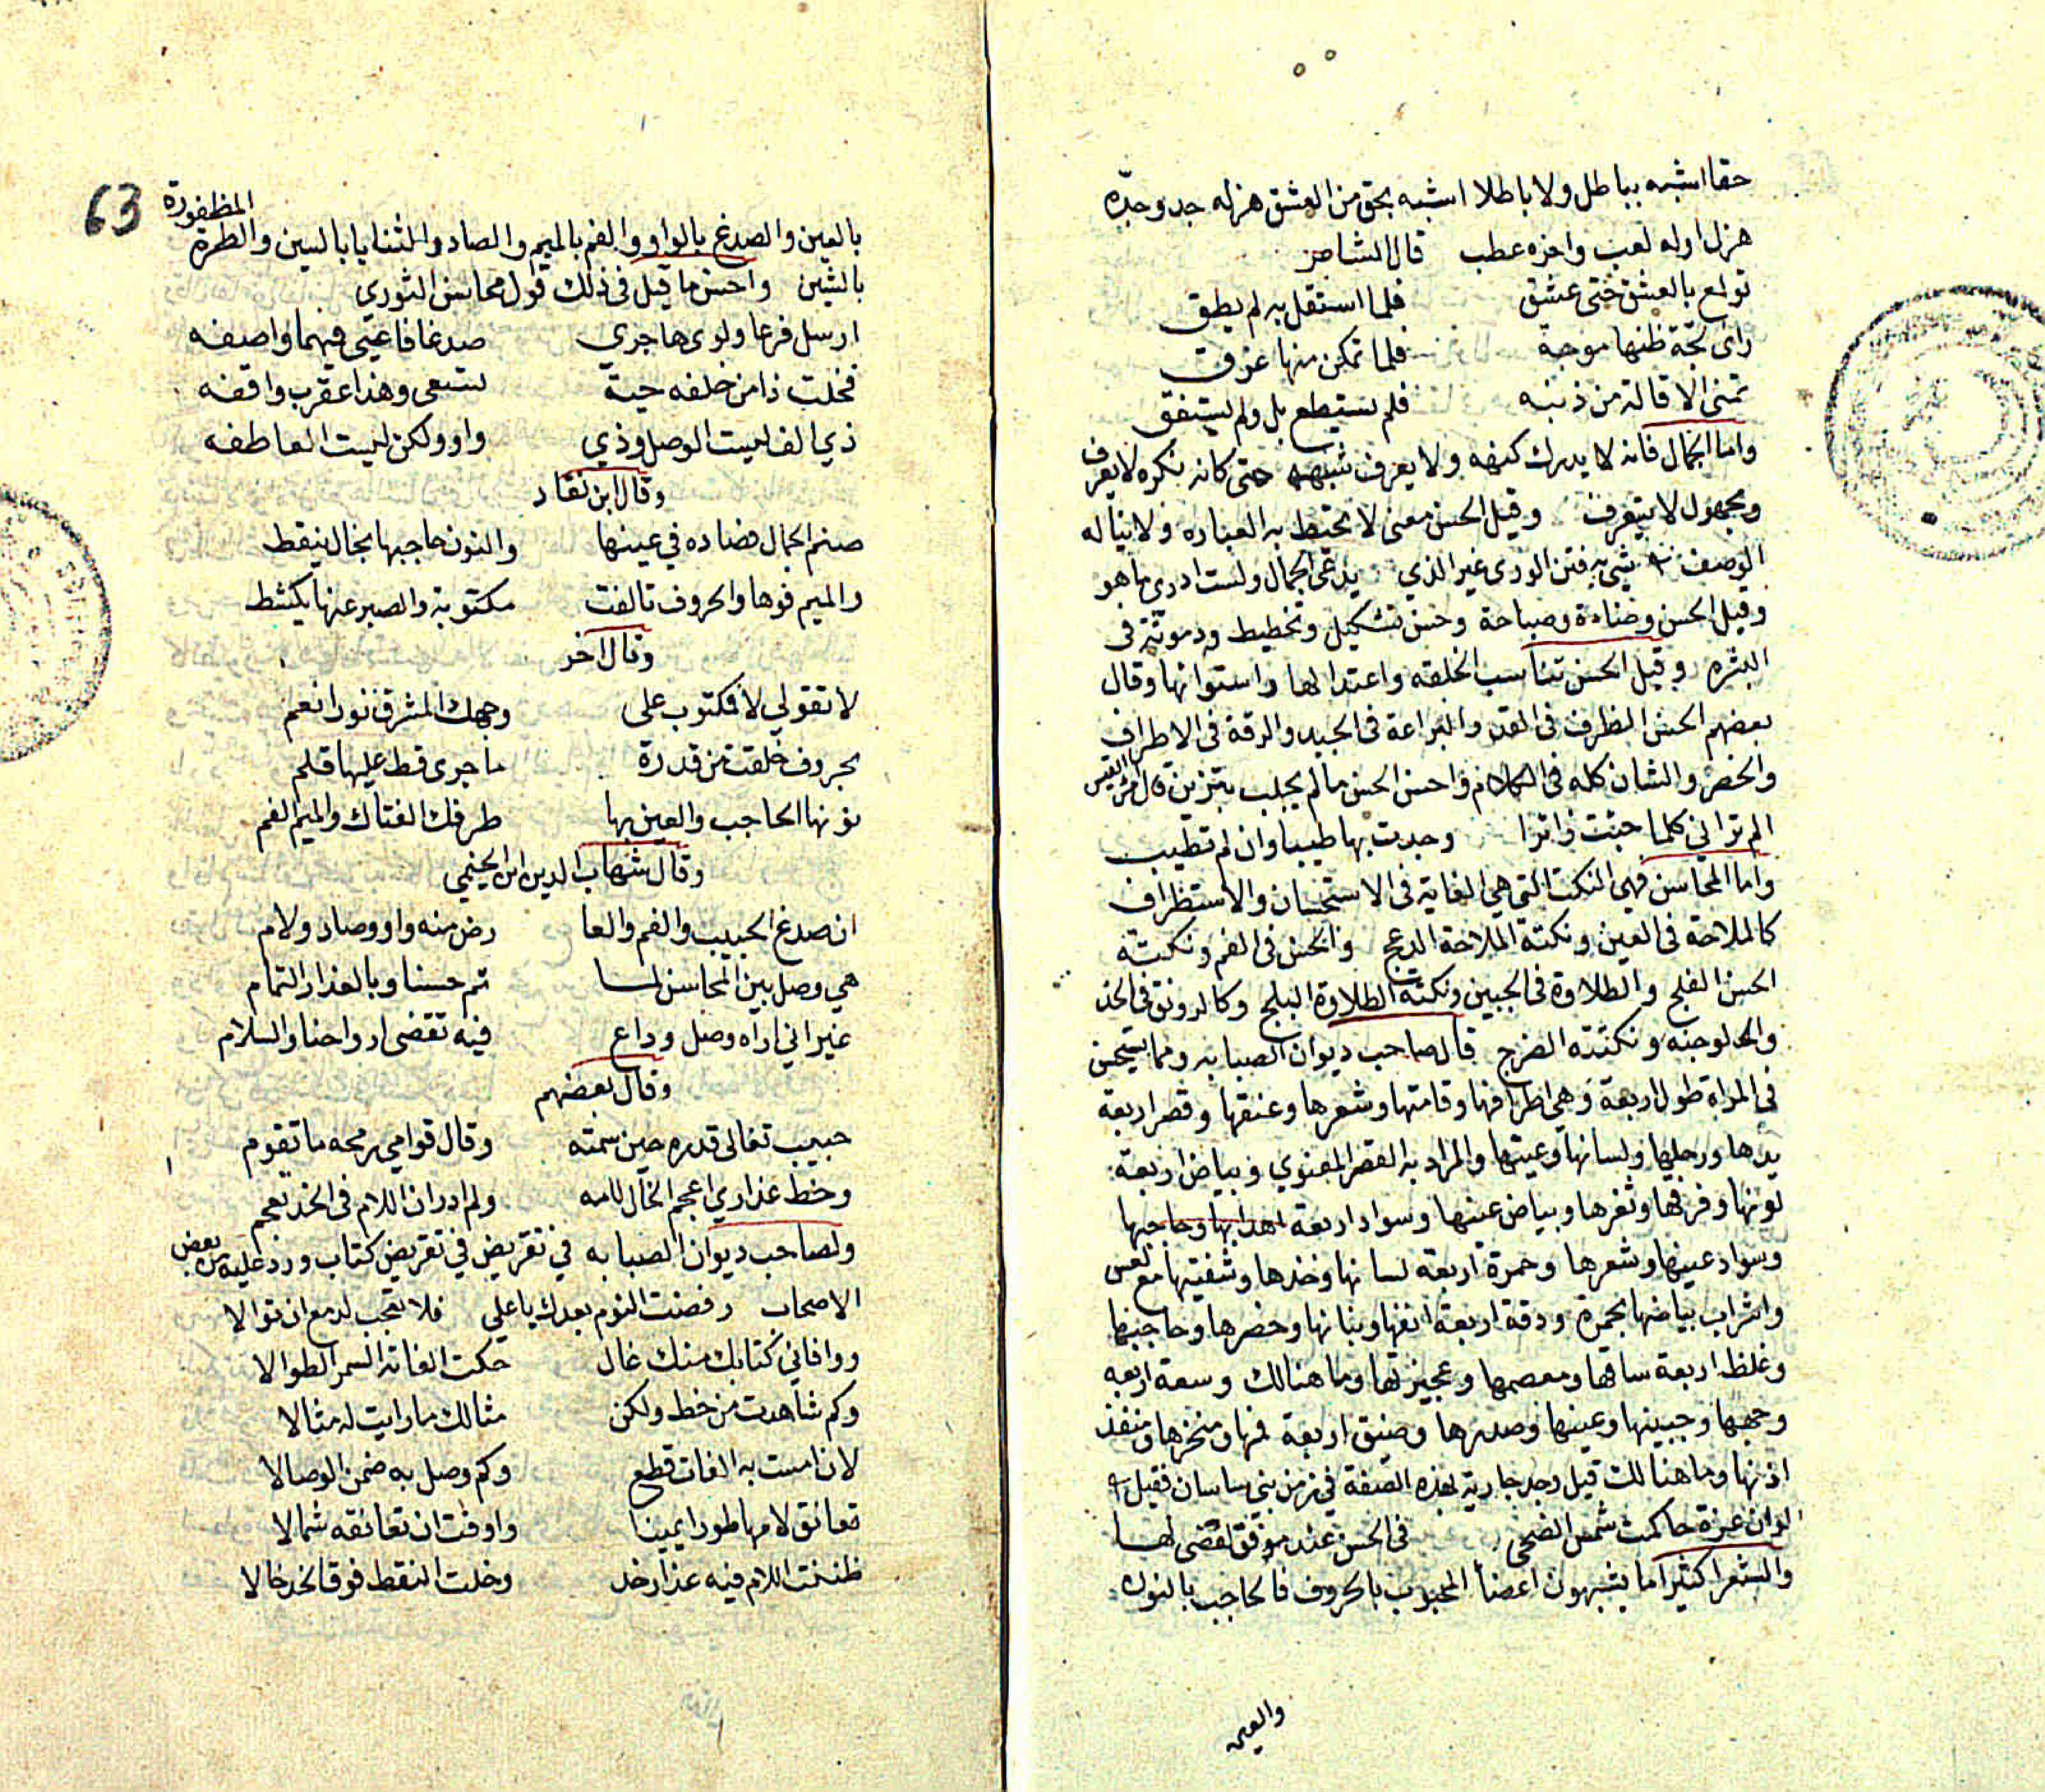 حقا اشبه بباطل ولا باطلا اشبه بحق من العشق هزله جد وجده
هزل اوله لعب واخره عطب قال الشاعر
تولع بالعشق حتى عشق فلما استقل به لم يطق
راى لجة ظنها موجة فلما تمكن منها غرق
تمنى الاقالة من ذنبه فلم يستطع بل ولم يستفق
واما الجمال فانه لا يدرك كنهه ولا يعرف شبهه حتى كانه نكره لا يعرف
ومجهول لا يتعرف وقيل الحسن معنى لا تحتط به العباره ولا يناله
الوصف شي به فتن الورى غير الذي يدعى الجمال ولست ادرى ما هو
وقيل الحسن وضاءة وصباحة وحسن تشكيل وتخطيط ودموثة فى
البشره وقيل الحسن تناسب الخلقه واعتدالها واستوائها وقال
بعضهم الحسن الظرف فى القد والبراعة فى الجيد والرقة فى الاطراف
والخصر والشان كله فى الكلام واحسن الحسن ما لم يجلب بتزين قال امرؤ القيس
الم تر اني كلما جئت زائرا وجدت بها طيبا وان لم تطيب
واما المحاسن فهى النكت التى هى الغاية فى الاستحسان والاستظراف
كالملاحة فى العين ونكتة الملاحة الدعج والحسن فى الفم ونكتته
الحسن الفلج والطلاوة فى الجبين ونكتة الطلاوة البلج وكالرونق فى الخد
ونكتته الضرج قال صاحب ديوان الصبابه ومما يستحسن
في المراة طول اربعة وهى اطرافها وقامتها وشعرها وعنقها وقصر اربعة
يدها ورجلها ولسانها وعينها والمراد به القصر المعنوي وبياض اربعة
لونها وفرقها وثغرها وبياض عينها وسواد اربعة اهدابها وحاجبها
وسواد عينها وشعرها وحمرة اربعة لسانها وخدها وشفتيها مع لعس
واشراب بياضها بحمرة ودقة اربعة انفها وبنانها وخصرها وحاجبها
وغلظ اربعة ساقها ومعصمها وعجيزتها وما هنالك وسعة اربعه
وجهها وجبينها وعينها وصدرها وضيق اربعة فمها ومنخرها ومنفذ
اذنها وما هنالك قيل وجد جارية بهذه الصفة في زمن بني ساسان فقيل
لو ان عزة حاكمت شمس الضحى فى الحسن عند موفق لقضى لها
والشعرا كثيرا ما يشبهون اعضأ المحبوب بالحروف فالحاجب بالنون
والعين
63
المظفورة
بالعين والصدغ بالواو والفم بالميم والصاد والثنايا بالسين والطرة
بالشين واحسن ما قيل فى ذلك قول محاسن الثوري
ارسل فرعا ولوى هاجري صدغا فاعيى فيهما واصفه
فخلت ذا من خلفه حية تسعى وهذا عقرب واقفه
ذي الف ليست الوصل وذي واو ولكن ليست العاطفه
وقال ابن نقاد
صنم الجمال فصاده في عينها والنون حاجبها بخال ينقط
والميم فوها والحروف تالفت مكتوبة والصبر عنها يكشط
وقال اخر
لا تقولي لا فمكتوب على وجهك المشرق نورا نعم
بحروف خلقت من قدرة ما جرى قط عليها قلم
نونها الحاجب والعين بها طرفك الفتاك والميم الفم
وقال شهاب الدين
ان صدغ الحبيب والفم والعا رض منه واو وصاد ولام
هي وصل بين المحاسن لما تم حسنا وبالعذار التمام
غير اني اراه وصل وداع فيه تقضى ارواحنا والسلام
وقال بعضهم
حبيب تغالى قدره حين سمته وقال قوامي رمحه ما تقوم
وخط عذاري اعجم الخال لامه ولم ادر ان اللام فى الخد تعجم
ولصاحب ديوان الصبابه في تقريض في تقريض كتاب ورد عليه من بعض
الاصحاب رفضت النوم بعدك يا علي فلا تعجب لدمع ان توالا
ووافاني كتابك منك غال حكت الفاته السمر الطوالا
وكم شاهدت من خط ولكن مثالك ما رايت له مثالا
لان امست به الفات قطع وكم وصل به ضمن الوصالا
تعانق لامها طورا يمينا واوقت ان تعانقه شمالا
ظننت اللام فيه عذار خد وخلت النقط فوق الخد خالا